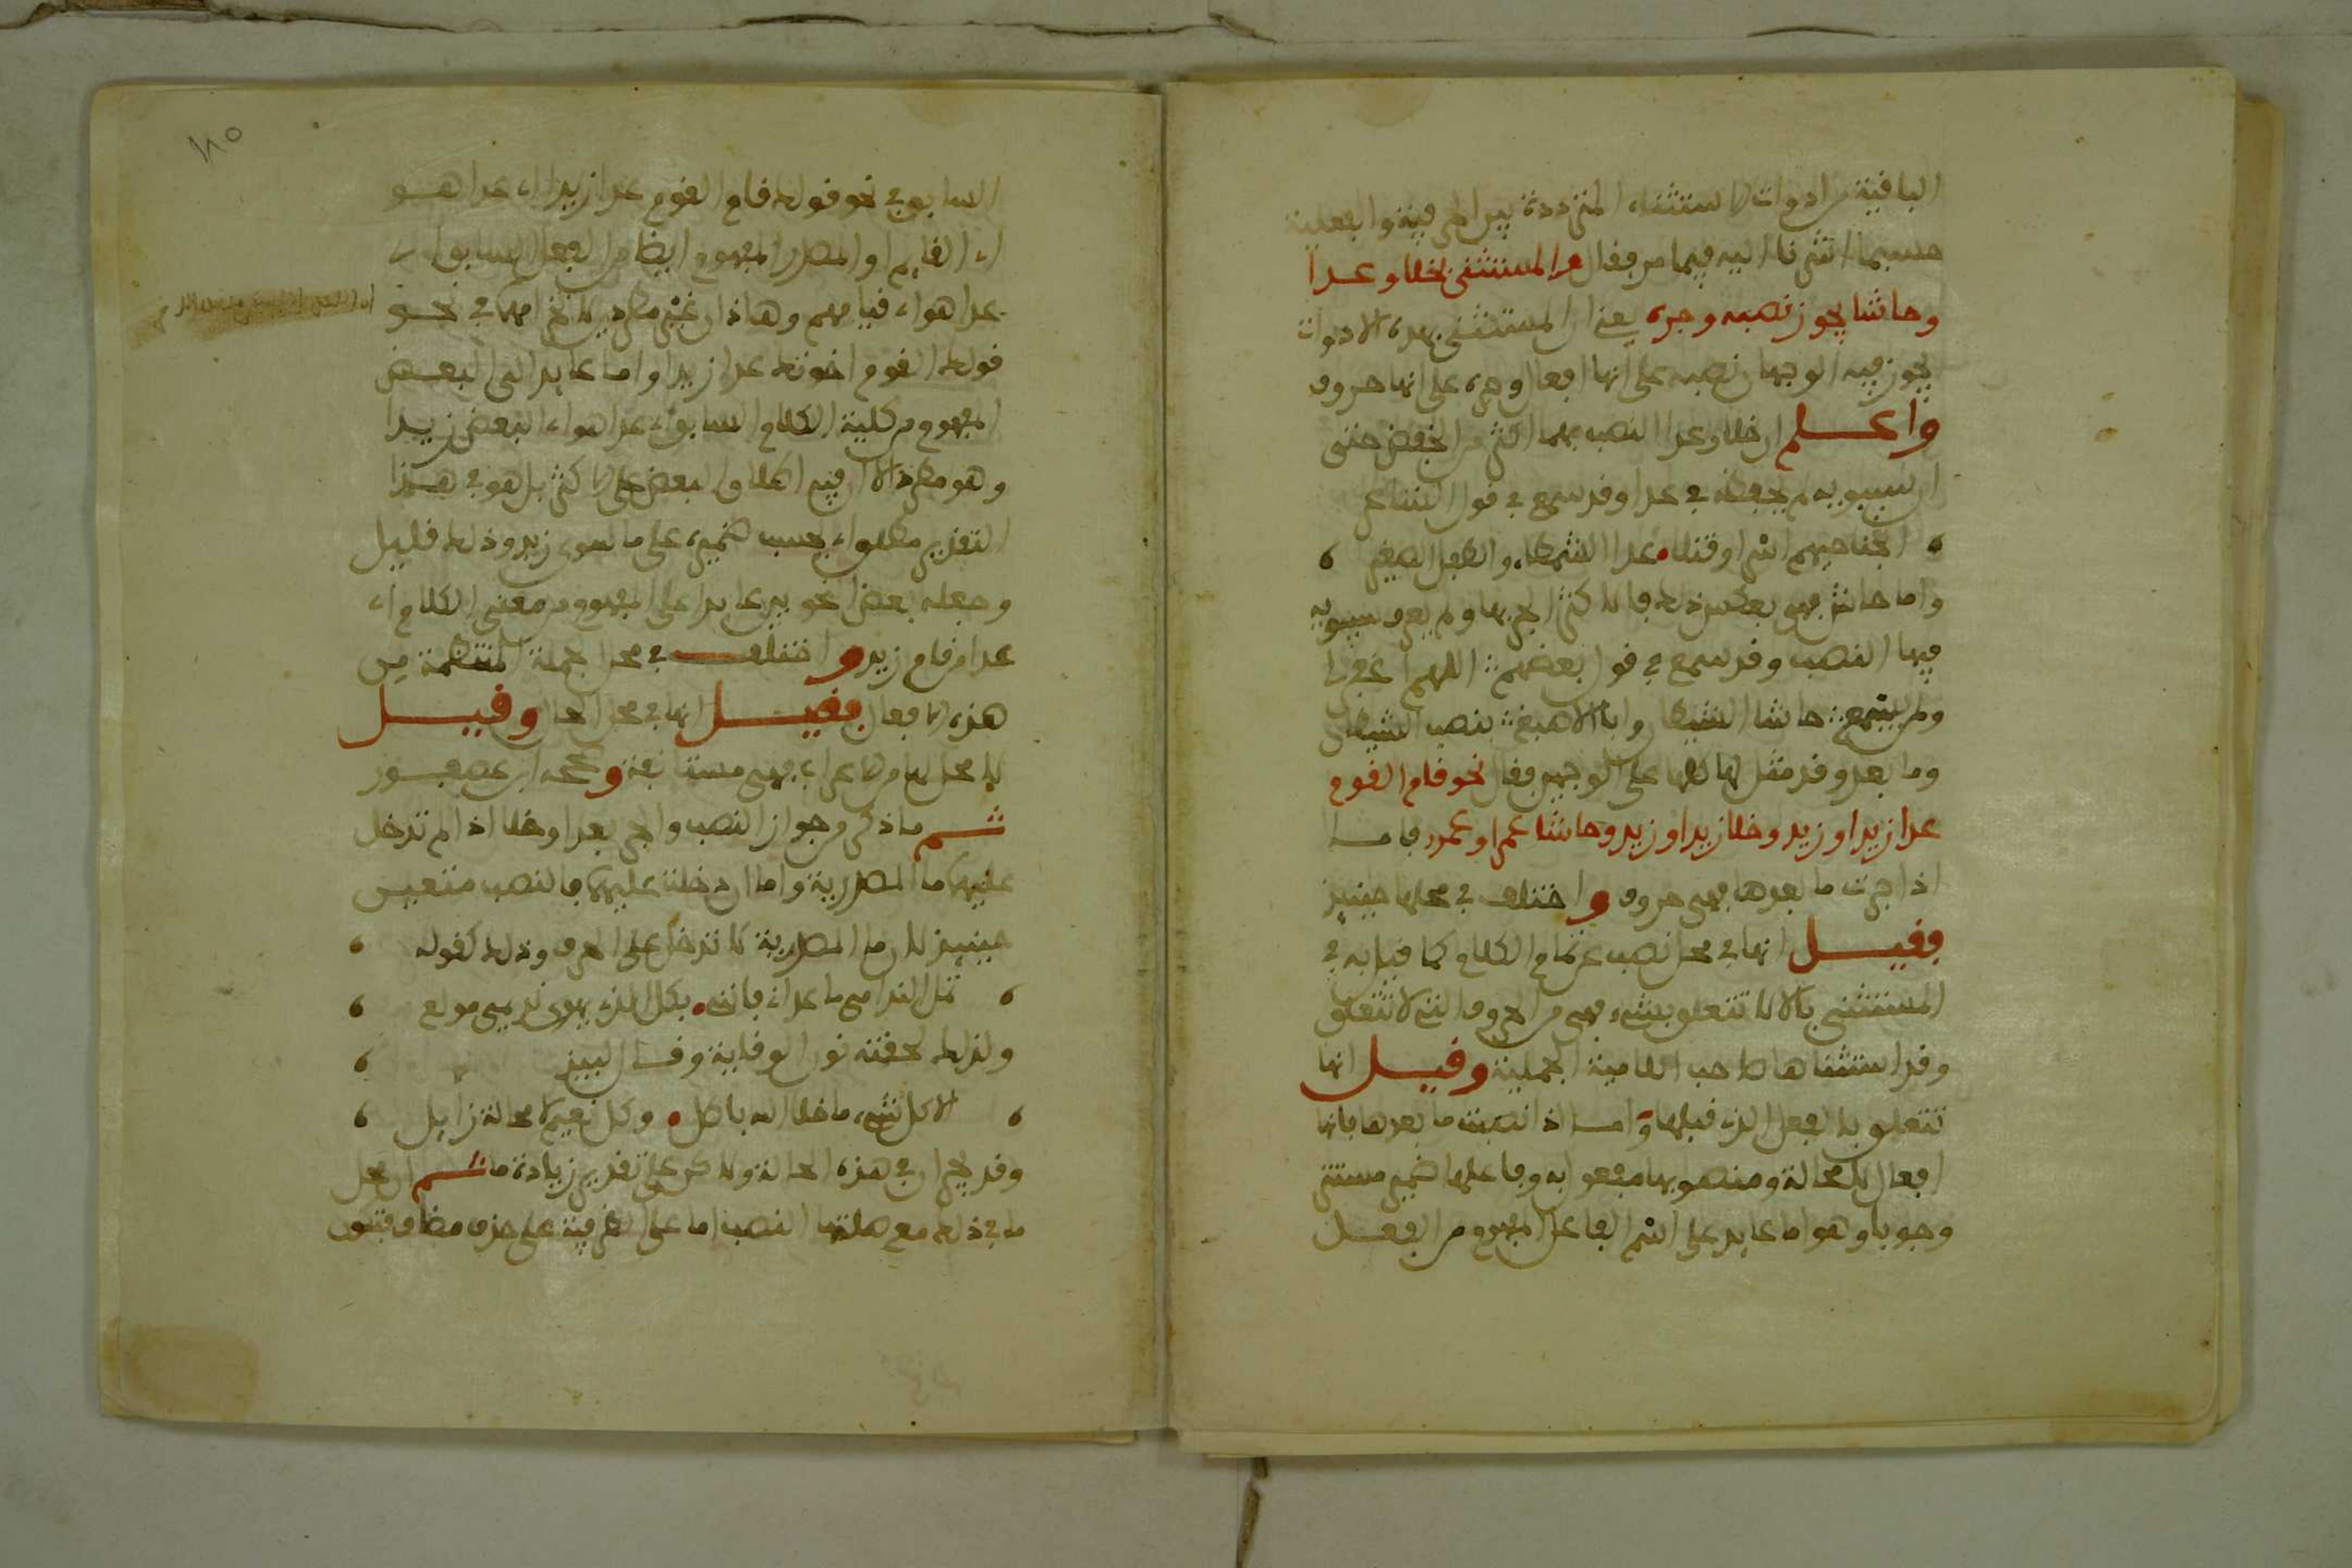 الباقية من ادوات الاستثناء المترددة بين الحرفية والفعلية
حسبما اشرنا اليه فيما مر فقال والمستثنى بخلا وعدا
وحاشا يجوز نصبه وجره يعني ان المستثنى بهذه الادوات
يجوز فيه الوجهان نصبه على انها افعال وجره على انها حروف
واعلم ان خلا وعدا النصب بهما اكثر من الخفض حتى
ان سيبويه لم يحفظه في عدا وقد سمع في قول الشاعر
ابحنا حيهم اسرا وقتلا عدا الشمطاء والطفل الصغير
واما حاشا فهي بعكس ذلك فالاكثر الجر بها ولم يعرف سيبويه
فيها النصب وقد سمع في قول بعضهم اللهم اغفر لي
ولمن يسمع حاشا الشيطان وابا الاصبغ بنصب الشيطان
وما بعد وقد مثل لها كلها على الوجهين فقال نحو قام القوم
عدا زيدا وزيد وخلا زيدا وزيد وحاشا عمرا وعمرو فاما
اذا جرت ما بعدها فهي حروف واختلف في محلها حينئذ
فقيل انها في محل نصب عن تمام الكلام كما قيل به في
المستثنى بالا لا تتعلق بشيء فهي من الحروف التي لا تتعلق
وقد استثناها صاحب اللامية الجملية وقيل انها
تتعلق بالفعل الذي قبلها واما اذا نصبت ما بعدها فانها
افعال لا محالة ومنصوبها مفعول به وفاعلها ضمير مستتر
وجوبا وهو اما عايد على اسم الفاعل المفهوم من الفعل
السابق في نحو قولك قام القوم عدا زيدا اي عدا هو
اي القايم او المصدر المفهوم ايضا من الفعل السابق اي
عدا هو اي قيامهم وهاذان غير مطردين لانخرامهما في نحو
قولك القوم اخوتك عدا زيدا واما عايد الى البعض
المفهوم من كلية الكلام السابق اي عدا هو اي البعض زيدا
وهو مطرد الا ان فيه اطلاق البعض على الاكثر بل هو في هذا
التقدير مطلق اي بحسب ضميره على ما سوى زيد وذلك قليل
وجعله بعض النحويين عايدا على المفهوم من معنى الكلام اي
عدا من قام زيد واختلف في محل الجملة المنتظمة من
هذه الافعال فقيل انها في محل الحال وقيل
لا محل لها من الاعراب فهي مستانفة وصححه ابن عصفور
ثم ما ذكر من جواز النصب والجر بعدا وخلا اذا لم تدخل
عليهما ما المصدرية واما ان دخلت عليهما فالنصب متعين
حينئذ لان ما المصدرية لا تدخل على الحرف وذلك كقوله
تمل الندامى ما عداني فانني بكل الذي يهوى نديمي مولع
ولذلك لحقته نون الوقاية وقال لبيد
الا كل شيء ما خلا الله باطل وكل نعيم لا محالة زايل
وقد يجران في هذه الحالة ولاكن على تقدير زيادة ما ثم ان محل
ما في ذلك مع صلتها النصب اما على الظرفية على حذف مضاف فتكون